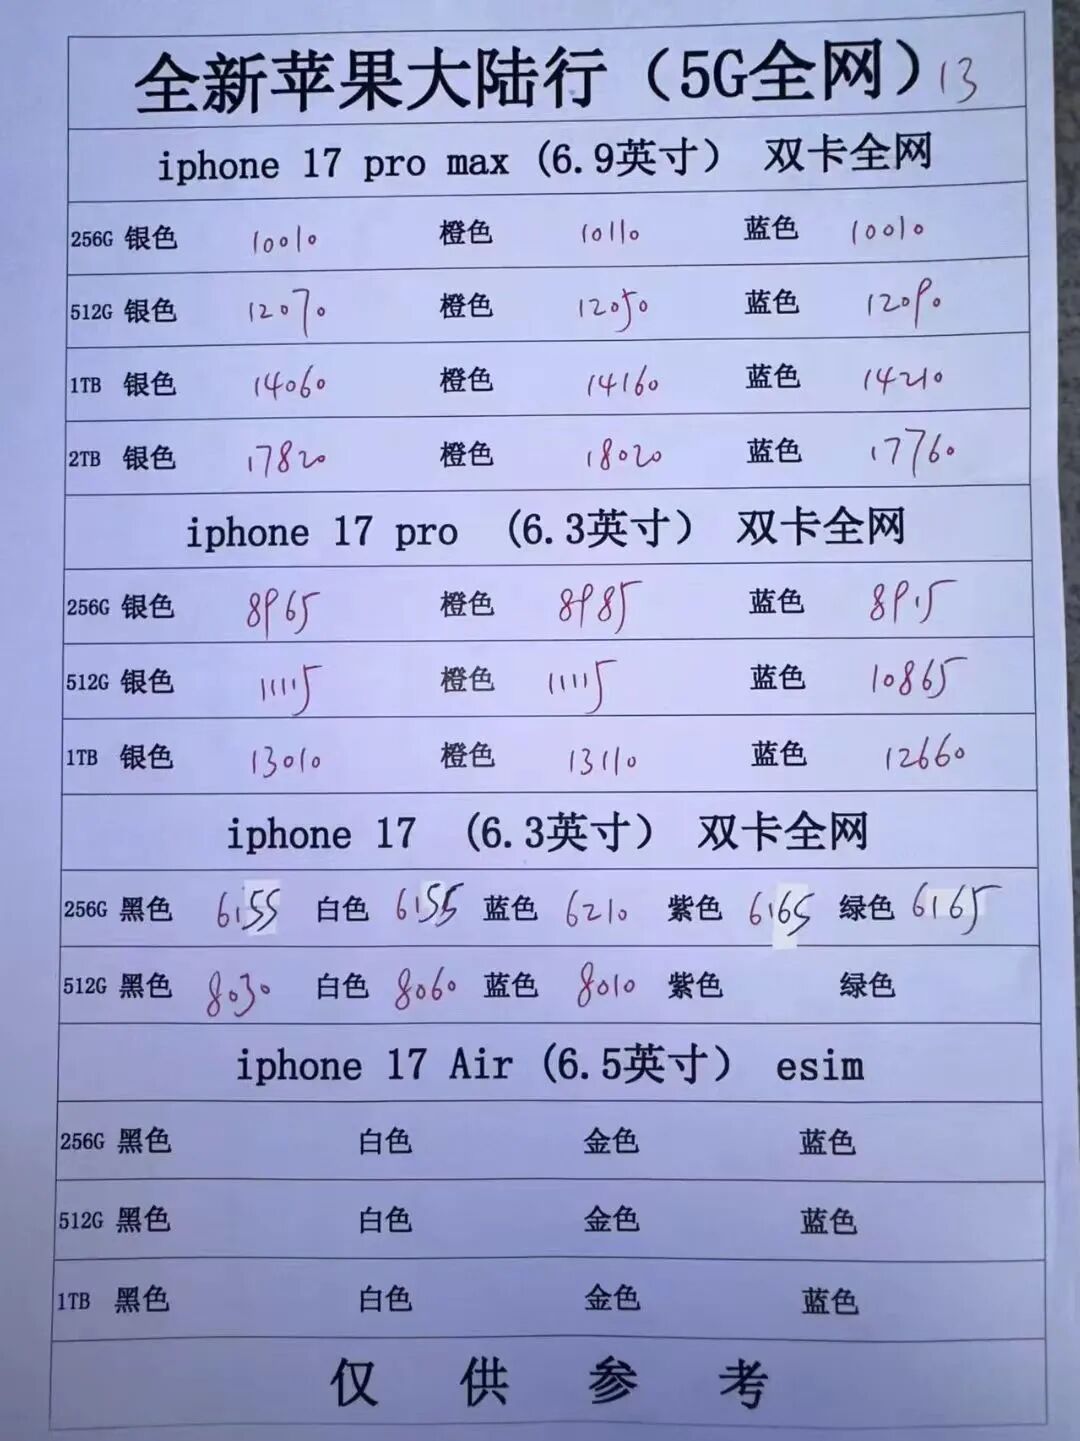 全新苹果大陆行（5G全网）13
iphone 17 pro max (6.9英寸） 双卡全网
256G 银色 10010 橙色 10110 蓝色 10010
512G 银色 12070 橙色 12050 蓝色 12090
1TB 银色 14060 橙色 14160 蓝色 14210
2TB 银色 17820 橙色 18020 蓝色 17760
iphone 17 pro (6.3英寸） 双卡全网
256G 银色 8965 橙色 8985 蓝色 8915
512G 银色 11115 橙色 11115 蓝色 10865
1TB 银色 13010 橙色 13110 蓝色 12660
iphone 17 (6.3英寸） 双卡全网
256G 黑色 6155 白色 6155 蓝色 6210 紫色 6165 绿色 6165
512G 黑色 8030 白色 8060 蓝色 8010 紫色 绿色
iphone 17 Air (6.5英寸） esim
256G 黑色 白色 金色 蓝色
512G 黑色 白色 金色 蓝色
1TB 黑色 白色 金色 蓝色
仅供参考